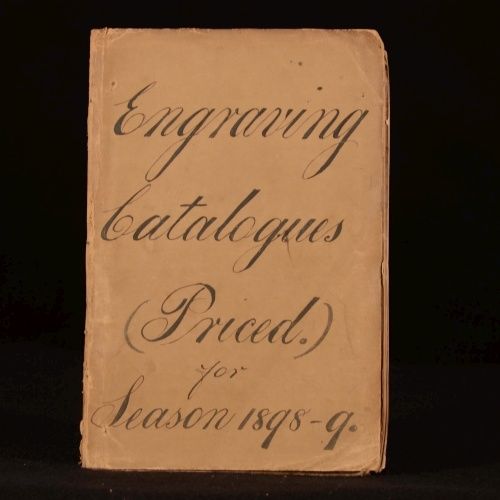 Engraving
Catalogues
(Priced.)
for
Season 1898-9.